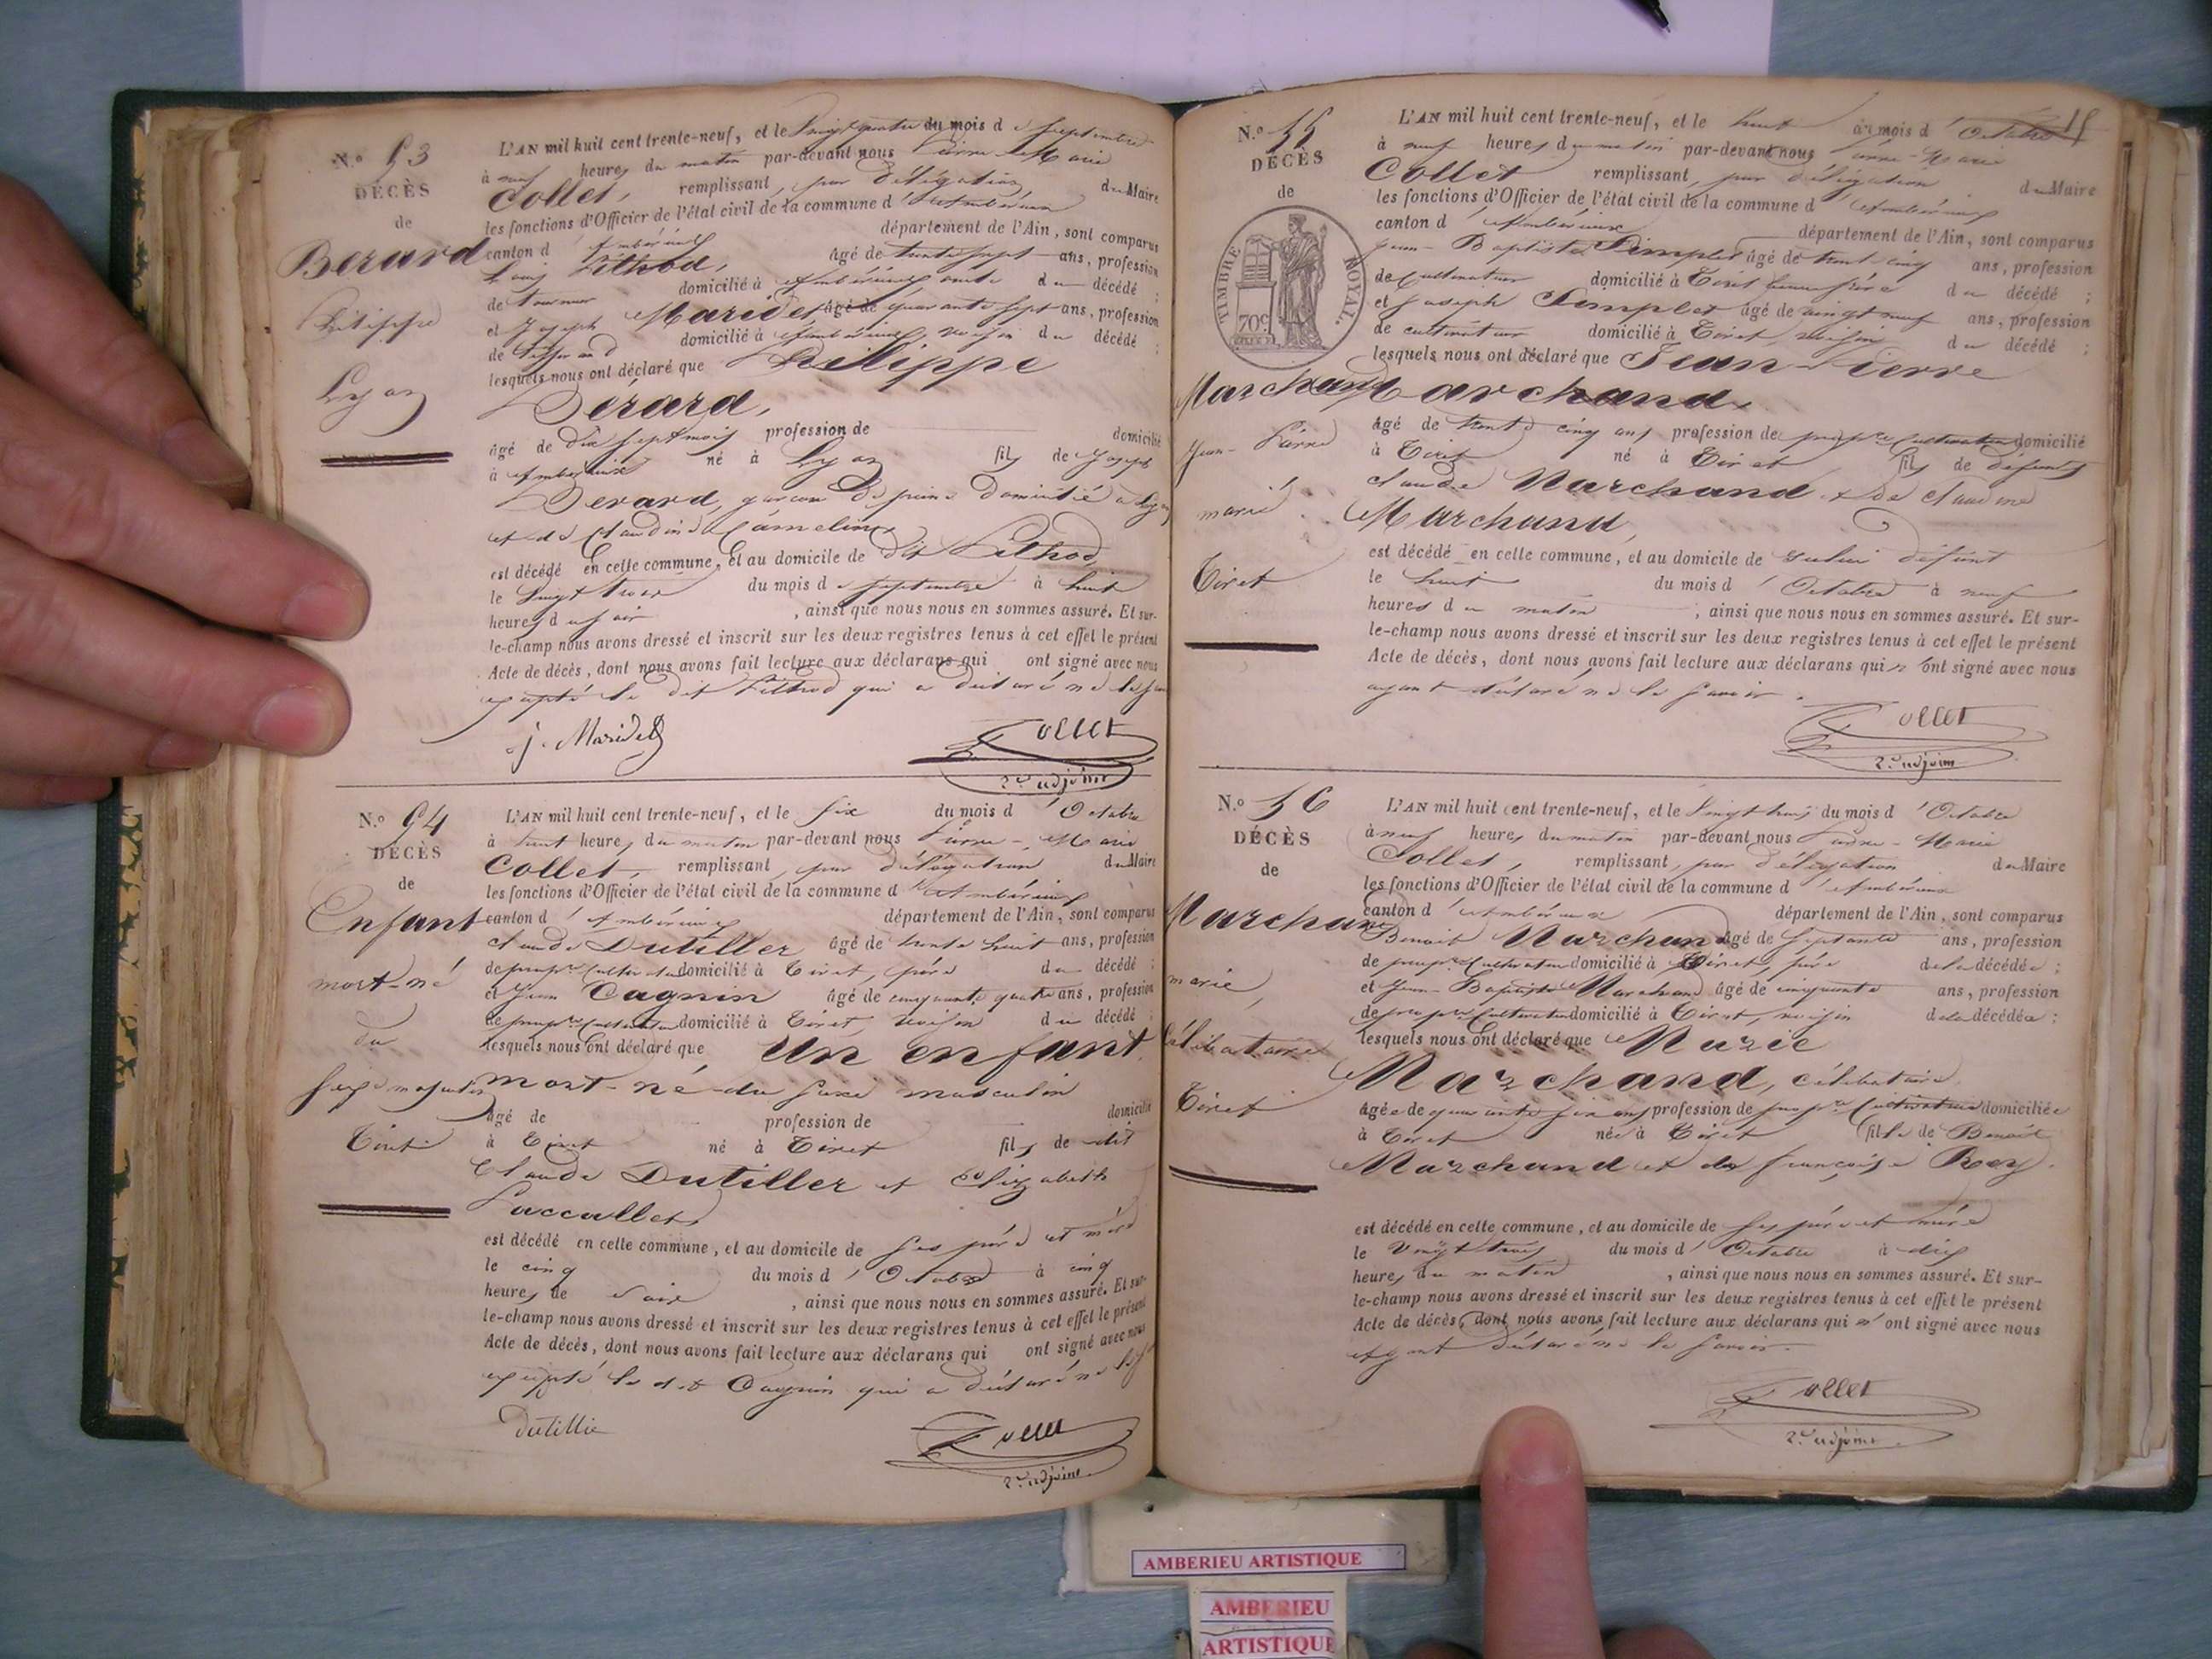 N.o 53
DÉCÈS
de
Berard
Philippe
Lyon
L'AN mil huit cent trente-neuf, et le Vingt quatre du mois de Septembre
à neuf heures du matin par-devant nous Pierre-Marie
Collet, remplissant, par délégation, du Maire
les fonctions d'Officier de l'état civil de la commune d'Ambérieux
canton d'Ambérieux département de l'Ain, sont comparus
Louis Pithod, âgé de trente sept ans, profession
de tourneur domicilié à Ambérieux du décédé ;
et Joseph Maridet âgé de quarante sept ans, profession
de tisserand domicilié à Ambérieux, voisin du décédé ;
lesquels nous ont déclaré que Philippe
Bérard,
âgé de dix sept mois profession de domicilié
à Amberieux né à Lyon fils de Joseph
Berard, garçon de peine domicilié à Lyon
et de Claudine
est décédé en cette commune, et au domicile de dit Pithod,
le Vingt trois du mois de Septembre à huit
heures du soir , ainsi que nous nous en sommes assuré. Et sur-
le-champ nous avons dressé et inscrit sur les deux registres tenus à cet effet le présent
Acte de décès, dont nous avons fait lecture aux déclarans qui ont signé avec nous
excepté le dit Pithod qui a déclaré ne le
j. Maridet
Collet
2e adjoint
N.o 54
DÉCÈS
de
Enfant
mort-né
du
sexe masculin
Tiret
L'AN mil huit cent trente-neuf, et le six du mois d'Octobre
à huit heures du matin par-devant nous Pierre-Marie
Collet, remplissant, par délégation du Maire
les fonctions d'Officier de l'état civil de la commune d'Ambérieux
canton d'Ambérieux département de l'Ain, sont comparus
Claude Dutiller âgé de trente huit ans, profession
de propre Cultivateur domicilié à Tiret, père du décédé ;
et Jean Cagnin âgé de cinquante quatre ans, profession
de propre Cultivateur domicilié à Tiret, voisin du décédé ;
lesquels nous ont déclaré que Un enfant
mort-né du sexe masculin
âgé de profession de domicilié
à Tiret né à Tiret fils de dit
Claude Dutiller et Elizabeth
est décédé en cette commune, et au domicile de ses père et mère
le cinq du mois d'Octobre à cinq
heures de soir , ainsi que nous nous en sommes assuré. Et sur-
le-champ nous avons dressé et inscrit sur les deux registres tenus à cet effet le présent
Acte de décès, dont nous avons fait lecture aux déclarans qui ont signé avec nous
excepté le dit Cagnin qui a déclaré ne le
Dutillie
Collet
2e adjoint
N.o 55
DÉCÈS
de
TIMBRE ROYAL.
70c
Marchand
Jean-Pierre
marié
Tiret
L'AN mil huit cent trente-neuf, et le huit du mois d'Octobre
à neuf heures du matin par-devant nous Pierre-Marie
Collet remplissant, par délégation du Maire
les fonctions d'Officier de l'état civil de la commune d'Ambérieux
canton d'Ambérieux département de l'Ain, sont comparus
Jean-Baptiste Simplet âgé de trente cinq ans, profession
de Cultivateur domicilié à Tiret beau frère du décédé ;
et Joseph Semplet âgé de vingt neuf ans, profession
de cultivateur domicilié à Tiret voisin du décédé ;
lesquels nous ont déclaré que Jean-Pierre
Marchand
âgé de trente cinq ans profession de propre Cultivateur domicilié
à Tiret né à Tiret fils de défunts
Claude Marchand et de Claudine
Marchand,
est décédé en cette commune, et au domicile de défunt
le huit du mois d'Octobre à neuf
heures du matin ; ainsi que nous nous en sommes assuré. Et sur-
le-champ nous avons dressé et inscrit sur les deux registres tenus à cet effet le présent
Acte de décès, dont nous avons fait lecture aux déclarans qui n'ont signé avec nous
ayant déclaré ne le savoir.
Collet
2e adjoint
N.o 56
DÉCÈS
de
Marchand
marie
célibataire
Tiret
L'AN mil huit cent trente-neuf, et le Vingt trois du mois d'Octobre
à neuf heures du matin par-devant nous Pierre-Marie
Collet, remplissant, par délégation du Maire
les fonctions d'Officier de l'état civil de la commune d'Ambérieux
canton d'Ambérieux département de l'Ain, sont comparus
Benoit Marchand âgé de septante ans, profession
de propre Cultivateur domicilié à Tiret, père de la décédée ;
et Jean-Baptiste Marchand âgé de cinquante ans, profession
de propre Cultivateur domicilié à Tiret, voisin de la décédée ;
lesquels nous ont déclaré que Marie
Marchand, célibataire
âgée de quarante six ans profession de propre Cultivateur domiciliée
à Tiret née à Tiret fille de Benoit
Marchand et de françoise Rey.
est décédé en cette commune, et au domicile de ses père et mère
le Vingt trois du mois d'Octobre à dix
heures du matin , ainsi que nous nous en sommes assuré. Et sur-
le-champ nous avons dressé et inscrit sur les deux registres tenus à cet effet le présent
Acte de décès, dont nous avons fait lecture aux déclarans qui n'ont signé avec nous
ayant déclaré ne le savoir.
Collet
2e adjoint
AMBERIEU ARTISTIQUE
AMBERIEU
ARTISTIQUE